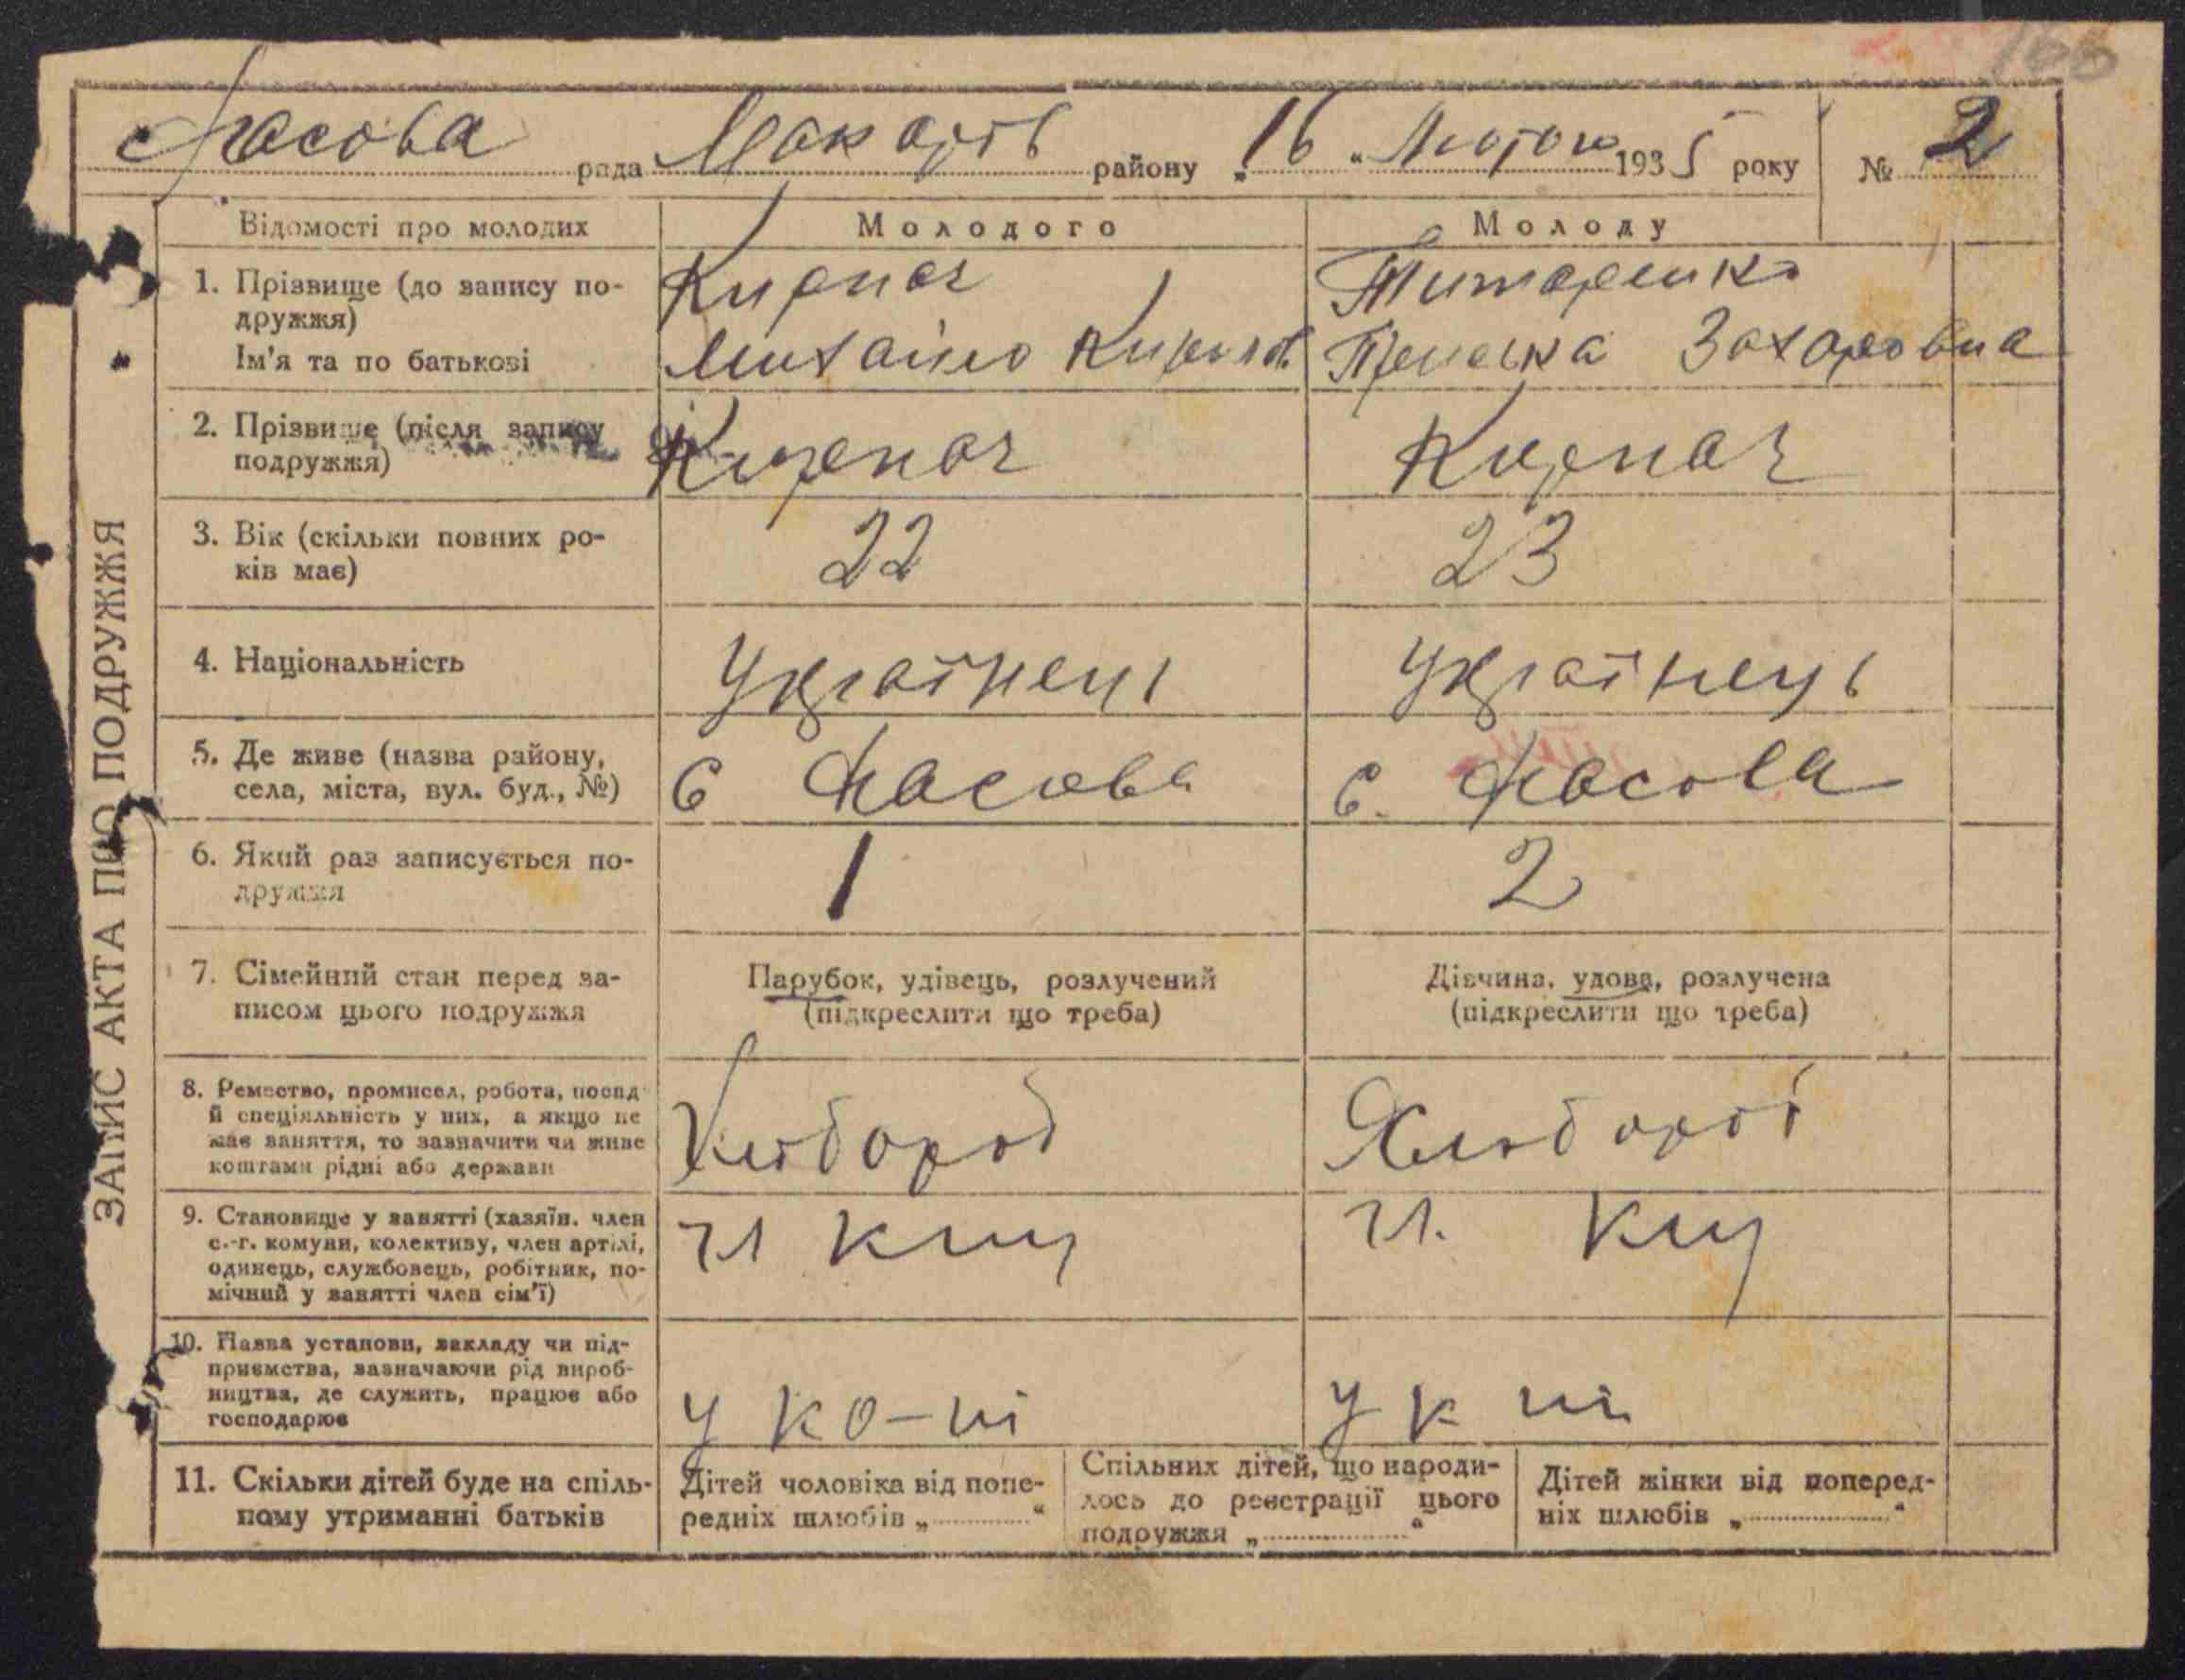 166
Фасова рада Макарів району „ 16 “ Лютого 1935 року № 2
Відомості про молодих Молодого Молоду
1. Прізвище (до запису по-
дружжя)
Кирпач Титаренко
Ім'я та по батькові Михайло Захаровна
2. Прізвище (після запису
подружжя)
Кирпач Кирпач
3. Вік (скільки повних ро-
ків має)
22 23
4. Національність Українець Українець
5. Де живе (назва району,
села, міста, вул. буд., №)
с Фасова с. Фасова
6. Який раз записується по-
дружжя
1 2
7. Сімейний стан перед за-
писом цього подружжя
Парубок, удівець, розлучений
(підкреслити що треба)
Дівчина, удова, розлучена
(підкреслити що треба)
8. Ремество, промисел, робота, посад
й спеціяльність у них, а якщо не
має заняття, то зазначити чи живе
коштами рідні або держави
Хлібороб Хлібороб
9. Становище у занятті (хазяїн, член
с.-г. комуни, колективу, член артілі,
одинець, службовець, робітник, по-
мічний у занятті член сім'ї)
чл чл.
10. Назва установи, закладу чи під-
приємства, зазначаючи рід вироб-
ництва, де служить, працює або
господарює
у ко-пі у к пі
11. Скільки дітей буде на спіль-
ному утриманні батьків
Дітей чоловіка від попе-
редніх шлюбів „ “
Спільних дітей, що народи-
лось до реєстрації цього
подружжя „ “
Дітей жінки від поперед-
ніх шлюбів „ “
ЗАПИС АКТА ПРО ПОДРУЖЖЯ